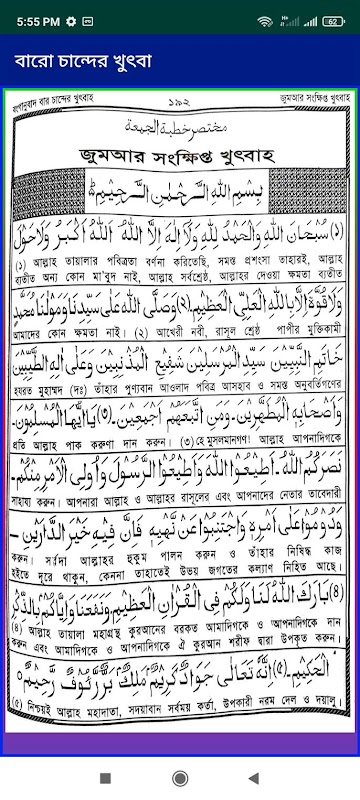 5:55 PM
62
বারো চান্দের খুৎবা
বঙ্গানুবাদ বার চান্দের খুৎবাহ ١٩٢ জুমআর সংক্ষিপ্ত খুৎবাহ
مختصر خطبة الجمعة
জুমআর সংক্ষিপ্ত খুৎবাহ
بِسْمِ اللهِ الرَّحْمٰنِ الرَّحِيْمِ
(١) سُبْحَانَ اللهِ وَالْحَمْدُ لِلّٰهِ وَلَا اِلٰهَ اِلَّا اللهُ اَللهُ اَكْبَرُ وَلَاحَوْلَ
(১) আল্লাহ তায়ালার পবিত্রতা বর্ণনা করিতেছি, সমস্ত প্রশংসা তাহারই, আল্লাহ
ব্যতীত অন্য কোন মা'বুদ নাই, আল্লাহ সর্বশ্রেষ্ঠ, আল্লাহর দেওয়া ক্ষমতা ব্যতীত
وَلَاقُوَّةَ اِلَّا بِاللهِ الْعَلِيِّ الْعَظِيْمِ-(٢) وَصَلَّى اللهُ عَلٰى سَيِّدِنَا وَمَوْلٰنَا مُحَمَّدٍ
আমাদের কোন ক্ষমতা নাই। (২) আখেরী নবী, রাসূল শ্রেষ্ঠ পাপীর মুক্তিকামী
خَاتَمِ النَّبِيِّيْنَ سَيِّدِ الْمُرْسَلِيْنَ شَفِيْعِ الْمُذْنِبِيْنَ وَعَلٰى اٰلِهِ الطَّيِّبِيْنَ
হযরত মুহাম্মদ (দঃ) তাঁহার পুণ্যবান আওলাদ পবিত্র আসহাব ও সমস্ত অনুবর্তিগণের
وَاَصْحَابِهِ الْمُطَهَّرِيْنَ-وَمَنِ اتَّبَعَهُمْ اَجْمَعِيْنَ-(٣) يَا اَيُّهَا الْمُسْلِمُوْنَ-
প্রতি আল্লাহ পাক করুণা দান করুন। (৩) হে মুসলমানগণ! আল্লাহ আপনাদিগকে
نَصَرَكُمُ اللهُ-اَطِيْعُوا اللهَ وَاَطِيْعُوا الرَّسُوْلَ وَاُولِى الْاَمْرِ مِنْكُمْ-
সাহায্য করুন। আপনারা আল্লাহ ও আল্লাহর রাসূলের এবং আপনাদের নেতার তাবেদারী
وَدُوْمُوْا عَلٰى اَمْرِهٖ وَاجْتَنِبُوْا عَنْ نَهْيِهٖ فَاِنَّ فِيْهِ خَيْرَ الدَّارَيْنِ-
করুন। সর্বদা আল্লাহর হুকুম পালন করুন ও তাঁহার নিষিদ্ধ কাজ
হইতে দূরে থাকুন, কেননা তাহাতেই উভয় জগতের কল্যাণ নিহিত আছে।
(٤) بَارَكَ اللهُ لَنَا وَلَكُمْ فِى الْقُرْاٰنِ الْعَظِيْمِ وَنَفَعَنَا وَاِيَّاكُمْ بِالذِّكْرِ
(৪) আল্লাহ তায়ালা মহাগ্রন্থ কুরআনের বরকত আমাদিগকে ও আপনাদিগকে দান
করুন এবং আমাদিগকে ও আপনাদিগকে ঐ কুরআন শরীফ দ্বারা উপকৃত করুন।
الْحَكِيْمِ-(٥) اِنَّهٗ تَعَالٰى جَوَادٌ كَرِيْمٌ مَلِكٌ بَرٌّ رَّءُوْفٌ رَّحِيْمٌ
(৫) নিশ্চয়ই আল্লাহ মহাদাতা, সদয়াবান সর্বময় কর্তা, উপকারী নরম দেল ও দয়ালু।